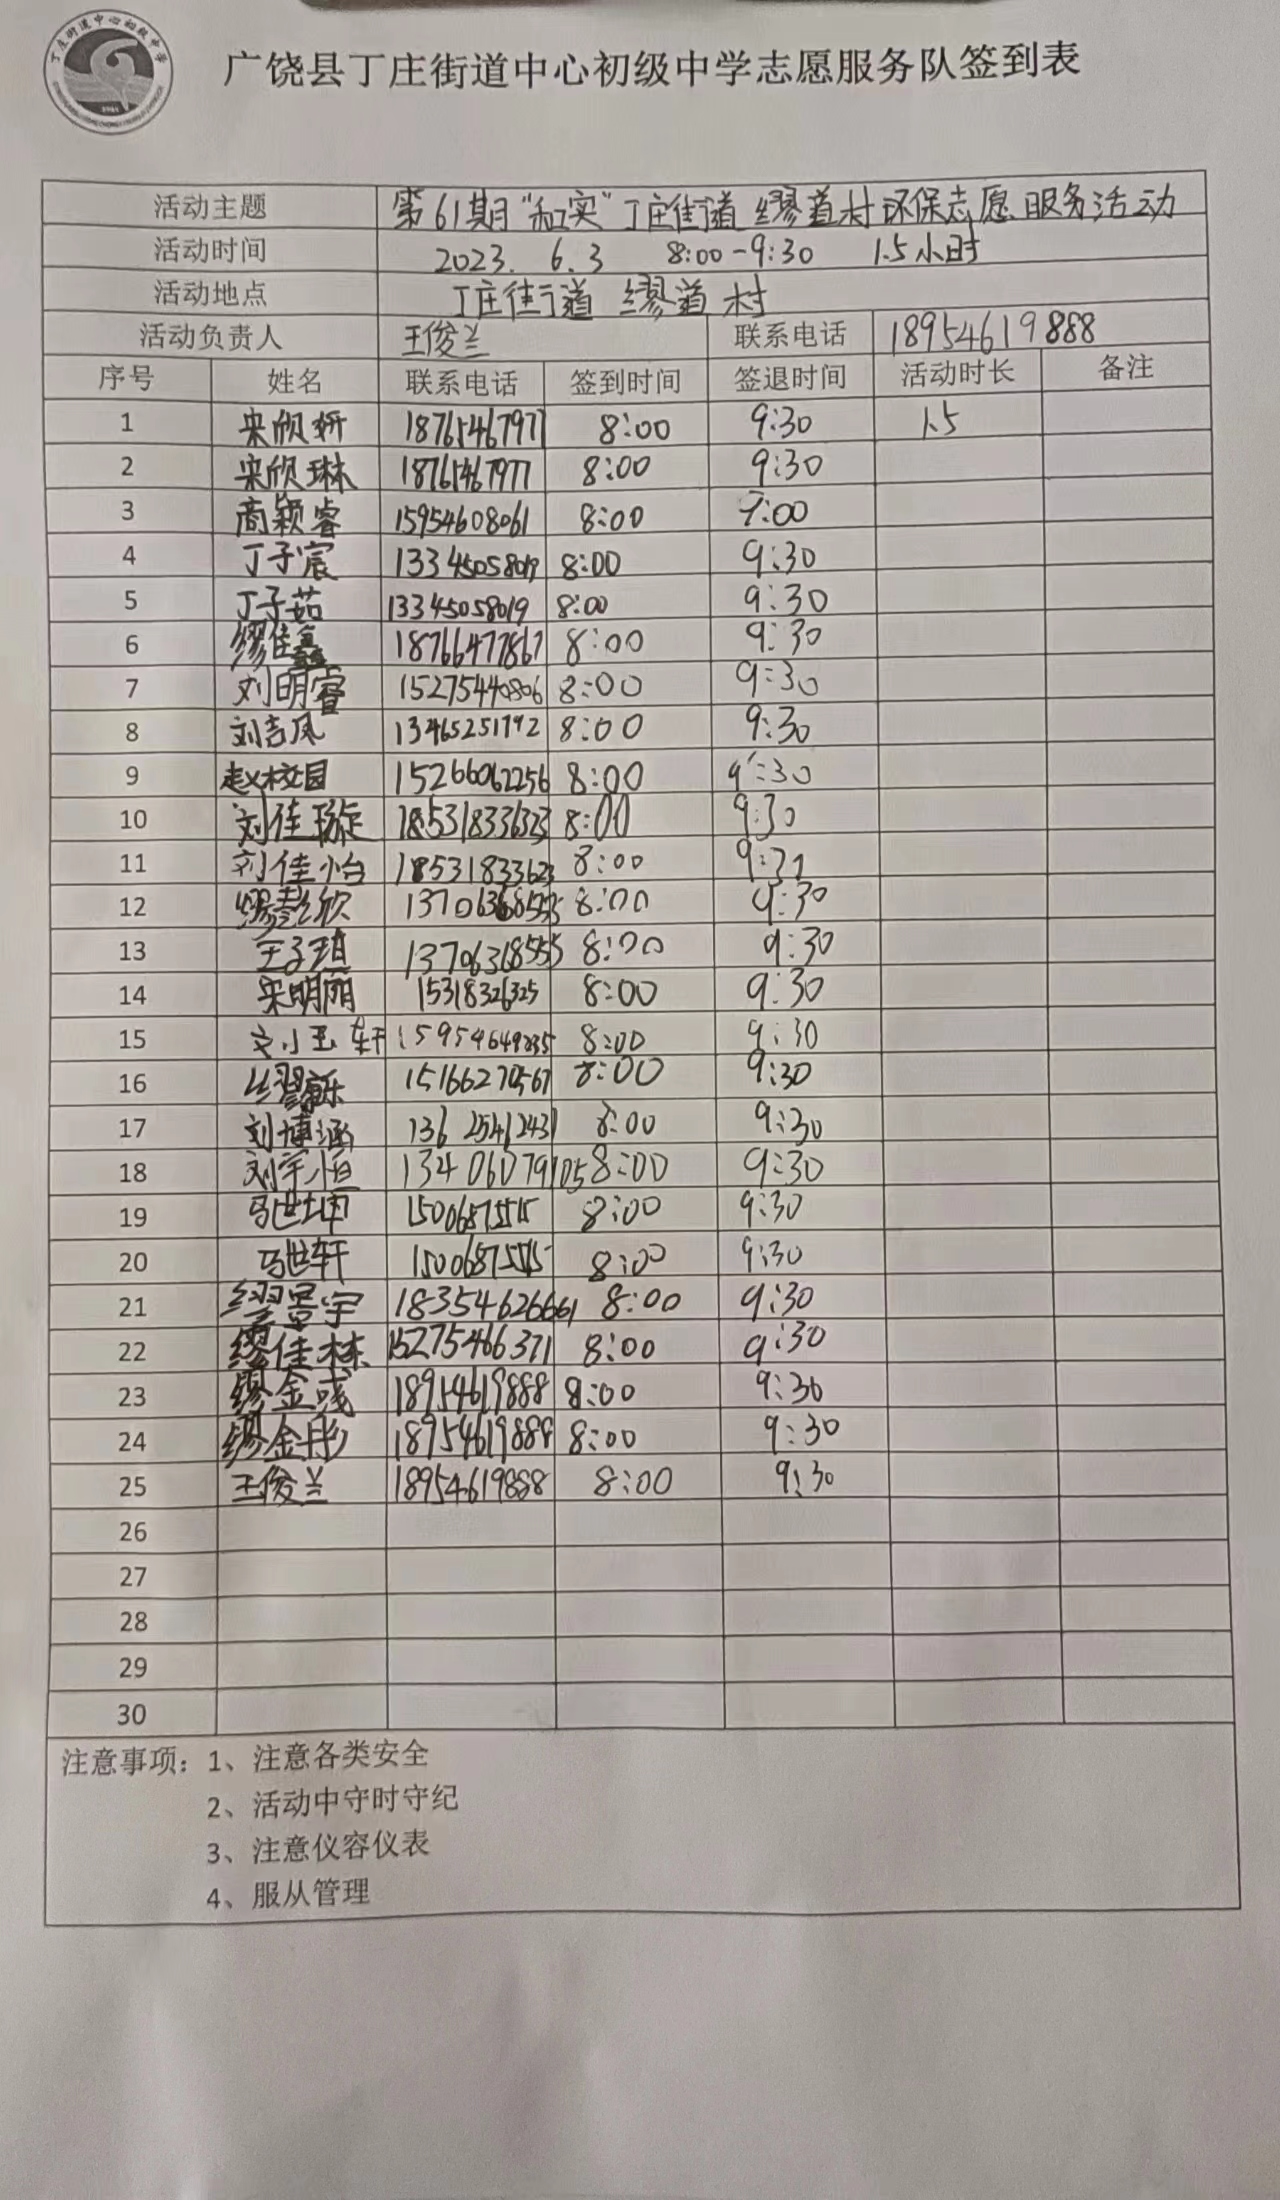 丁庄街道中心初级中学
广饶县丁庄街道中心初级中学志愿服务队签到表
活动主题 第61期"和实"丁庄街道缪道村环保志愿服务活动
活动时间 2023. 6.3 8:00-9:30 1.5小时
活动地点 丁庄街道缪道村
活动负责人 王俊兰 联系电话 18954619888
序号 姓名 联系电话 签到时间 签退时间 活动时长 备注
1 宋欣妍 18765467977 8:00 9:30 1.5
2 宋欣琳 18765467977 8:00 9:30
3 商颖睿 15954608061 8:00 9:00
4 丁子宸 13345058019 8:00 9:30
5 丁子茹 13345058019 8:00 9:30
6 缪佳鑫 18766477867 8:00 9:30
7 刘明睿 15275440806 8:00 9:30
8 刘吉凤 13465251792 8:00 9:30
9 赵校园 15266062256 8:00 9:30
10 刘佳璇 8:00 9:30
11 刘佳怡 18531833623 8:00
12 缪彭欣 8:00 9:30
13 王子琪 13706368555 8:00 9:30
14 宋明丽 15318326325 8:00 9:30
15 刘玉轩 8:00 9:30
16 15166270567 8:00 9:30
17 刘博涵 13625412431 8:00 9:30
18 刘宇恒 13406079105 8:00 9:30
19 马世坤 15006875515 8:00 9:30
20 马世轩 15006875515 8:00 9:30
21 缪景宇 18354626661 8:00 9:30
22 缪佳栋 15275466371 8:00 9:30
23 缪金彧 18954619888 8:00 9:30
24 缪金彤 18954619888 8:00 9:30
25 王俊兰 18954619888 8:00 9:30
26
27
28
29
30
注意事项：1、注意各类安全
2、活动中守时守纪
3、注意仪容仪表
4、服从管理